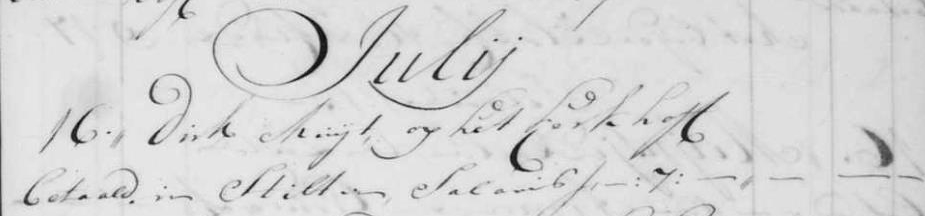 Julij
16. Dirk Kuijt, op het kerk hoff
betaald. in Stilten, :7:—